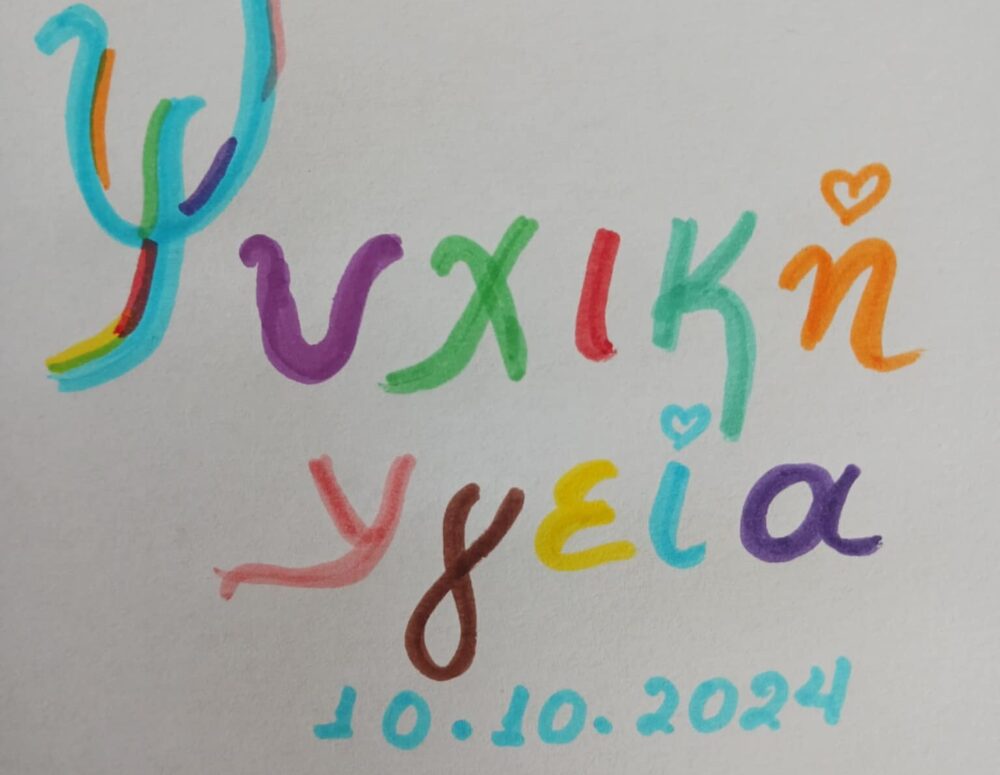 Ψυχική
Υγεία
10.10.2024